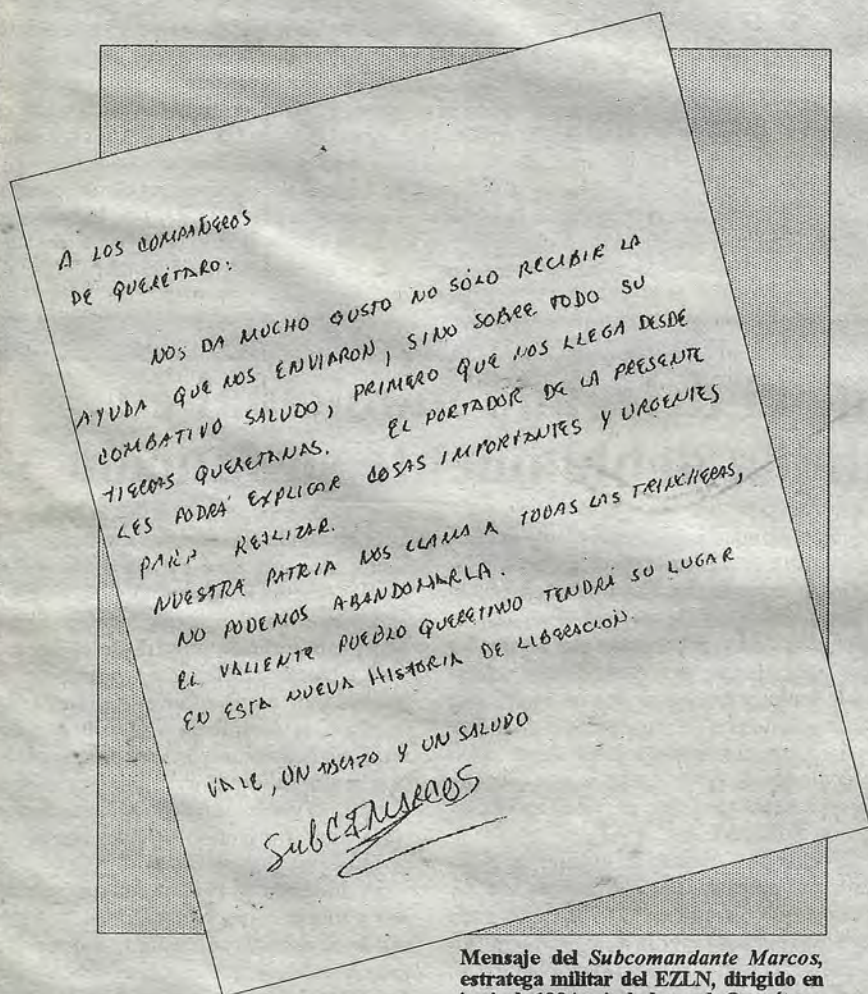 A LOS COMPAÑEROS
DE QUERÉTARO:
NOS DA MUCHO GUSTO NO SÓLO RECIBIR LA
AYUDA QUE NOS ENVIARON, SINO SOBRE TODO SU
COMBATIVO SALUDO, PRIMERO QUE NOS LLEGA DESDE
TIERRAS QUERETANAS. EL PORTADOR DE LA PRESENTE
LES PODRÁ EXPLICAR COSAS IMPORTANTES Y URGENTES
PARA REALIZAR.
NUESTRA PATRIA NOS LLAMA A TODAS LAS TRINCHERAS,
NO PODEMOS ABANDONARLA.
EL VALIENTE PUEBLO QUERETANO TENDRÁ SU LUGAR
EN ESTA NUEVA HISTORIA DE LIBERACIÓN.
VALE, UN ABRAZO Y UN SALUDO
SubC I MARCOS
Mensaje del Subcomandante Marcos,
estratega militar del EZLN, dirigido en